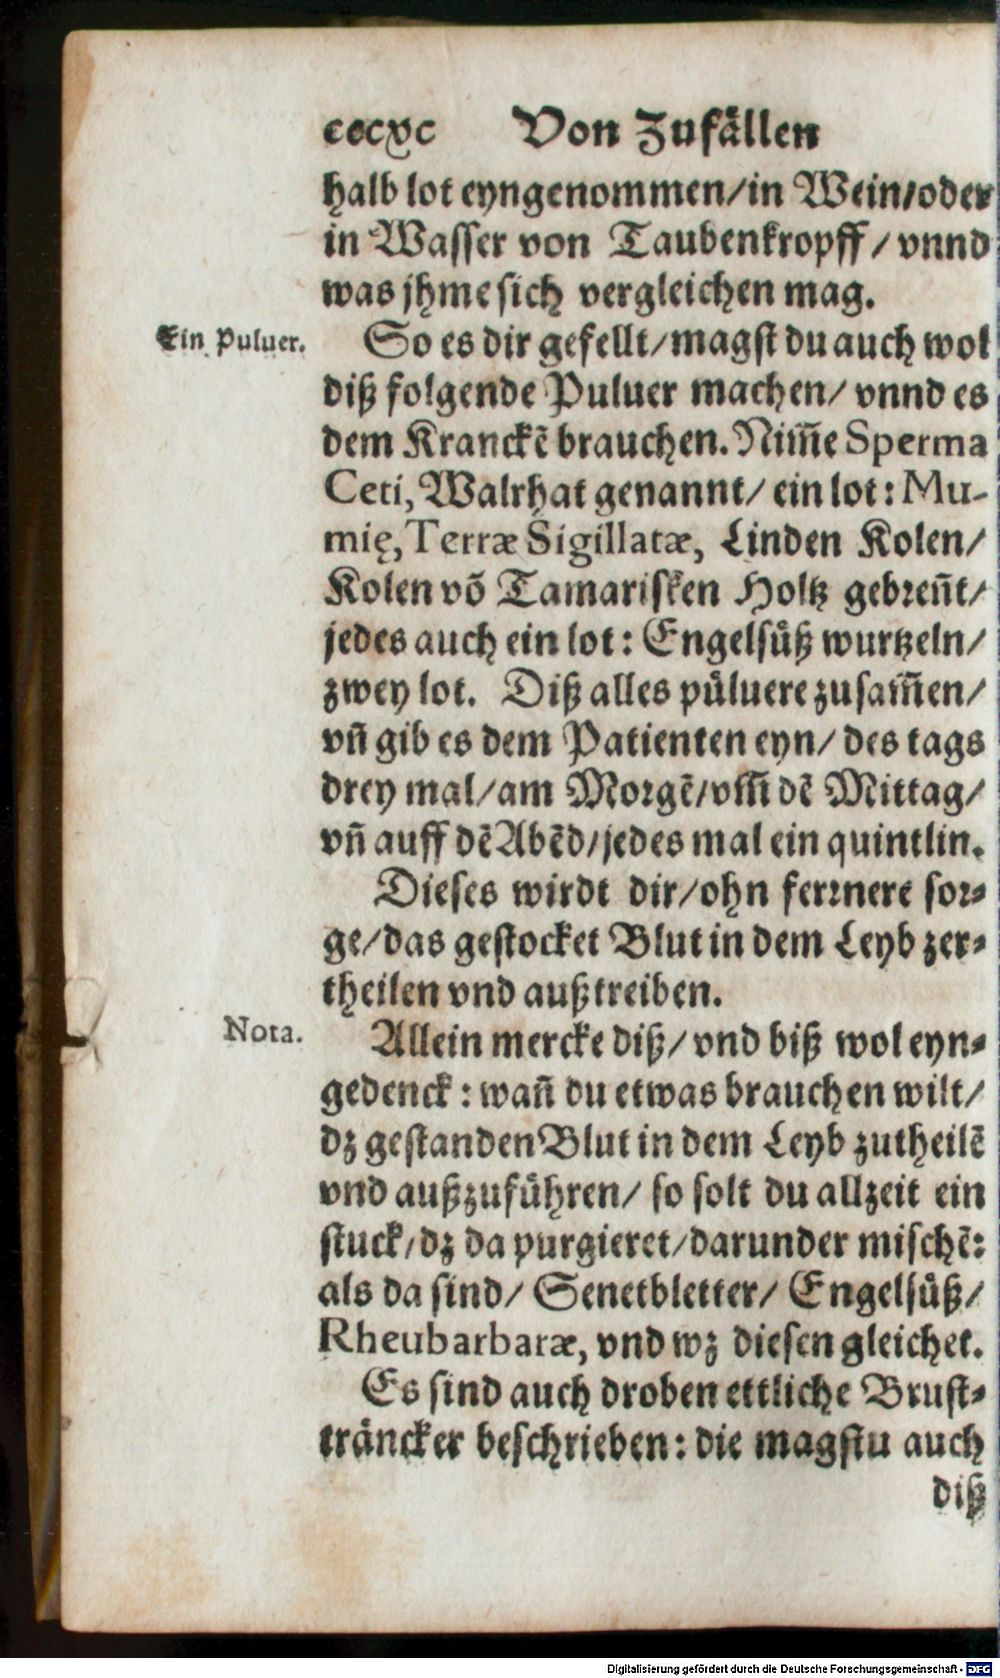 cccxc Von Zufällen
halb lot eyngenommen/in Wein/oder
in Wasser von Taubenkropff/vnnd
was jhme sich vergleichen mag.
Ein Puluer.
So es dir gefellt/magst du auch wol
diß folgende Puluer machen/vnnd es
dem Kranckẽ brauchen. Nim̃e Sperma
Ceti, Walrhat genannt/ein lot: Mu-
mię, Terræ Sigillatæ, Linden Kolen/
Kolen võ Tamarisken Holtz gebreñt/
jedes auch ein lot: Engelsüß wurtzeln/
zwey lot. Diß alles pülvere zusam̃en/
vñ gib es dem Patienten eyn/des tags
drey mal/am Morgẽ/vm̃ dẽ Mittag/
vñ auff dẽ Abẽd/jedes mal ein quintlin.
Dieses wirdt dir/ohn ferrnere sor-
ge/das gestocket Blut in dem Leyb zer-
theilen vnd außtreiben.
Nota.
Allein mercke diß/vnd biß wol eyn-
gedenck: wañ du etwas brauchen wilt/
dz gestanden Blut in dem Leyb zutheilẽ
vnd außzuführen/so solt du allzeit ein
stuck/dz da purgieret/darunder mischẽ:
als da sind/Senetbletter/Engelsüß/
Rheubarbaræ, vnd wz diesen gleichet.
Es sind auch droben ettliche Brust-
träncker beschrieben: die magstu auch
diß
Digitalisierung gefördert durch die Deutsche Forschungsgemeinschaft - DFG